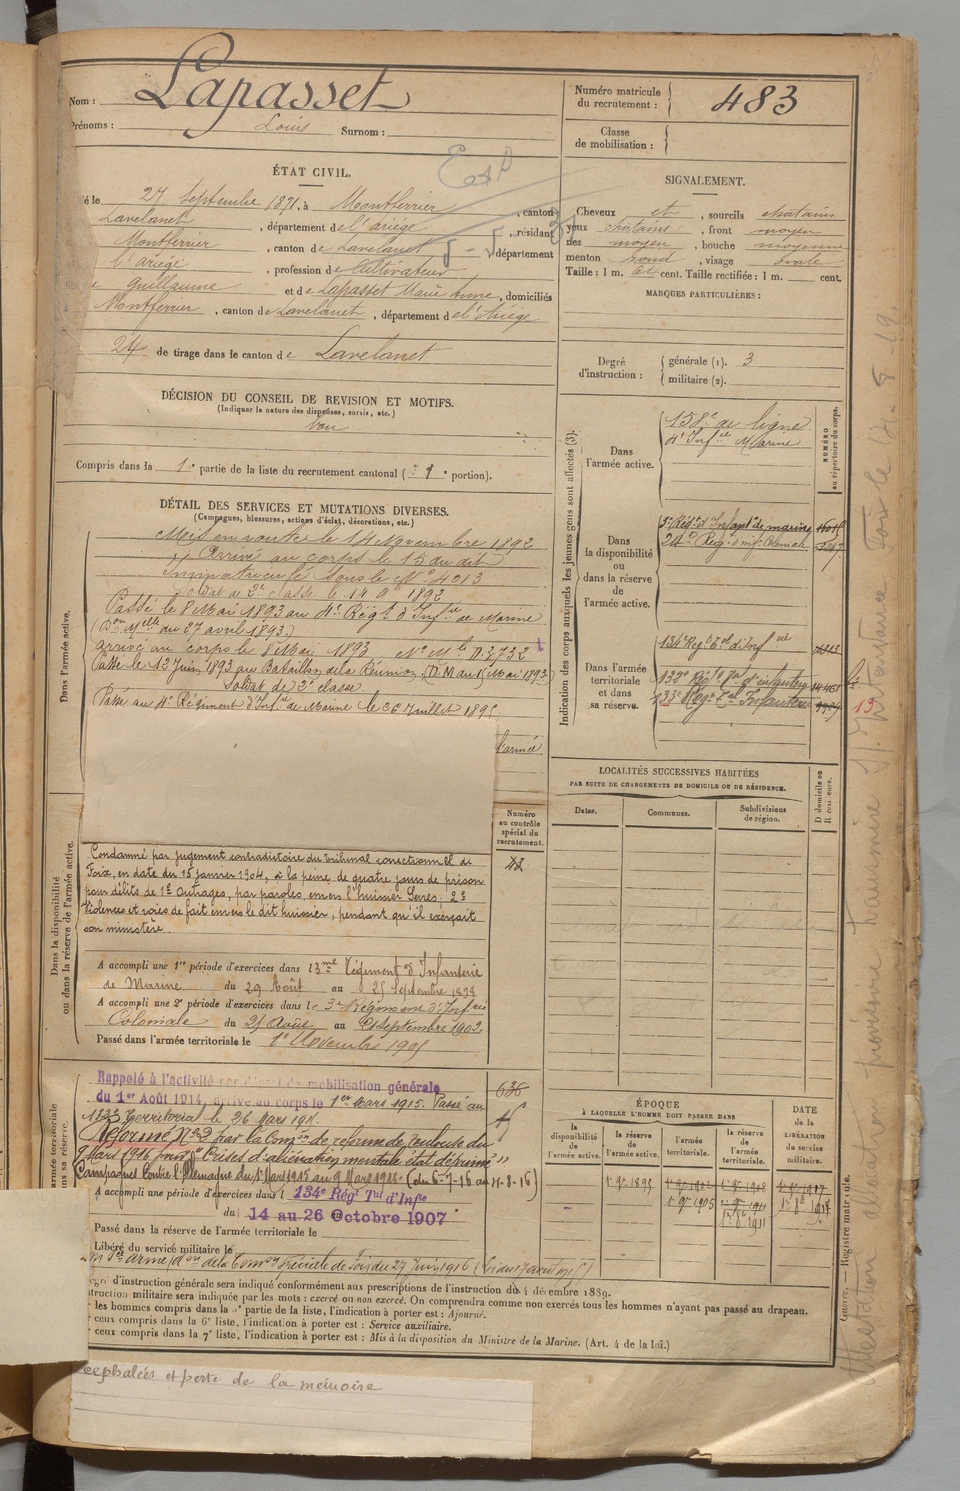 Nom : Lapasset
Prénoms : Louis Surnom :
Numéro matricule du recrutement : 483
Classe de mobilisation :
ÉTAT CIVIL.
é le 27 Septembre 1871, à Montferrier, canton
Lavelanet, département de l'ariège, résidant
Montferrier, canton de Lavelanet, département
l'ariège, profession de Cultivateur
e guillaume et de Lapasset Marie Anne, domiciliés
Montferrier, canton de Lavelanet, département de l'Ariège
24 de tirage dans le canton de Lavelanet
SIGNALEMENT.
Cheveux et, sourcils chatains
yeux chatains, front moyen
nez moyen, bouche moyenne
menton rond, visage ovale
Taille : 1 m. 64 cent. Taille rectifiée : 1 m. cent.
MARQUES PARTICULIÈRES :
Degré d'instruction : générale (1). 3
militaire (2).
DÉCISION DU CONSEIL DE REVISION ET MOTIFS.
(Indiquer la nature des dispenses, sursis, etc.)
bon
Compris dans la 1e partie de la liste du recrutement cantonal ( 1e portion).
DÉTAIL DES SERVICES ET MUTATIONS DIVERSES.
(Campagnes, blessures, actions d'éclat, décorations, etc.)
Dans l'armée active.
Mis en route le 14 Novembre 1892
Arrivé au corps le 15 du dit
Immatriculé sous le No 4013
Soldat de 2e classe le 14 9bre 1892
Passé le 8 Mai 1893 au 4e Régt d'Infie de Marine
(Don Mlle du 27 avril 1893.)
arrivé au corps le 8 Mai 1893 No Mle D.3732
Passé le 12 Juin 1893 au Bataillon de la Réunion (D.M. du 1 Mai 1893)
Soldat de 2e classe
Passé au 4e Régiment d'Infie de Marine le 26 Juillet 1895
l'armée
Indication des corps auxquels les jeunes gens sont affectés (3).
NUMÉRO au répertoire du corps.
Dans l'armée active.
158e de ligne
4e Infie Marine
Dans la disponibilité ou dans la réserve de l'armée active.
3e Régt d'Infant de marine
24e Régt d'inf Coloniale
Dans l'armée territoriale et dans sa réserve.
134e Regt Tal d'Infie
133e Régt Tal d'infanterie
133e Régt Tal Infanterie
13
LOCALITÉS SUCCESSIVES HABITÉES
PAR SUITE DE CHANGEMENTS DE DOMICILE OU DE RÉSIDENCE.
Dates. Communes. Subdivisions de région. D domicile ou R résidence.
Numéro au contrôle spécial du recrutement.
42
Dans la disponibilité ou dans la réserve de l'armée active.
Condamné par jugement contradictoire du tribunal correctionnel de
Foix, en date du 15 janvier 1904, à la peine de quatre jours de prison
pour délits de 1o Outrages, par paroles, envers l'huissier Serres; 2o
Violences et voies de fait envers le dit huissier, pendant qu'il exerçait
son ministère.
A accompli une 1re période d'exercices dans l 3me Régiment d'Infanterie
de Marine du 29 Août au 25 septembre 1898
A accompli une 2e période d'exercices dans le 3e Régiment d'Infrie
Coloniale du 25 Août au 21 septembre 1902
Passé dans l'armée territoriale le 1er Novembre 1905
Rappelé à l'activité par décret de mobilisation générale
du 1er Août 1914, arrivé au corps le 1er Mars 1915. Passé au
133e Territorial le 26 Mars 191
636
Réformé No 2 par la Comon de réforme de Toulouse du
9 Mars 1916 pour "Crises d'aliénation mentale état déprimé"
Campagnes Contre l'Allemagne du 1er Mars 1915 au 9 Mars 1916 (du 6-7-16 au 11-8-16)
A accompli une période d'exercices dans l 134e Régt Tal d'Infie
du 14 au 26 Octobre 1907
Passé dans la réserve de l'armée territoriale le
Libéré du service militaire le
ÉPOQUE
À LAQUELLE L'HOMME DOIT PASSER DANS
la disponibilité de l'armée active. la réserve de l'armée active. l'armée territoriale. la réserve de l'armée territoriale.
DATE de la LIBÉRATION du service militaire.
1er 9bre 1895 1er 9bre 1908 1er 9bre 1917
1er 9bre 1905 1er 9bre 1911
1er 8bre 1911
egré d'instruction générale sera indiqué conformément aux prescriptions de l'instruction du 4 décembre 1889.
struction militaire sera indiquée par les mots : exercé ou non exercé. On comprendra comme non exercés tous les hommes n'ayant pas passé au drapeau.
r les hommes compris dans la partie de la liste, l'indication à porter est : Ajourné.
r ceux compris dans la 6e liste, l'indication à porter est : Service auxiliaire.
r ceux compris dans la 7e liste, l'indication à porter est : Mis à la disposition du Ministre de la Marine. (Art. 4 de la loi.)
cephalées et perte de la mémoire
Guerre. — Registre matricule.